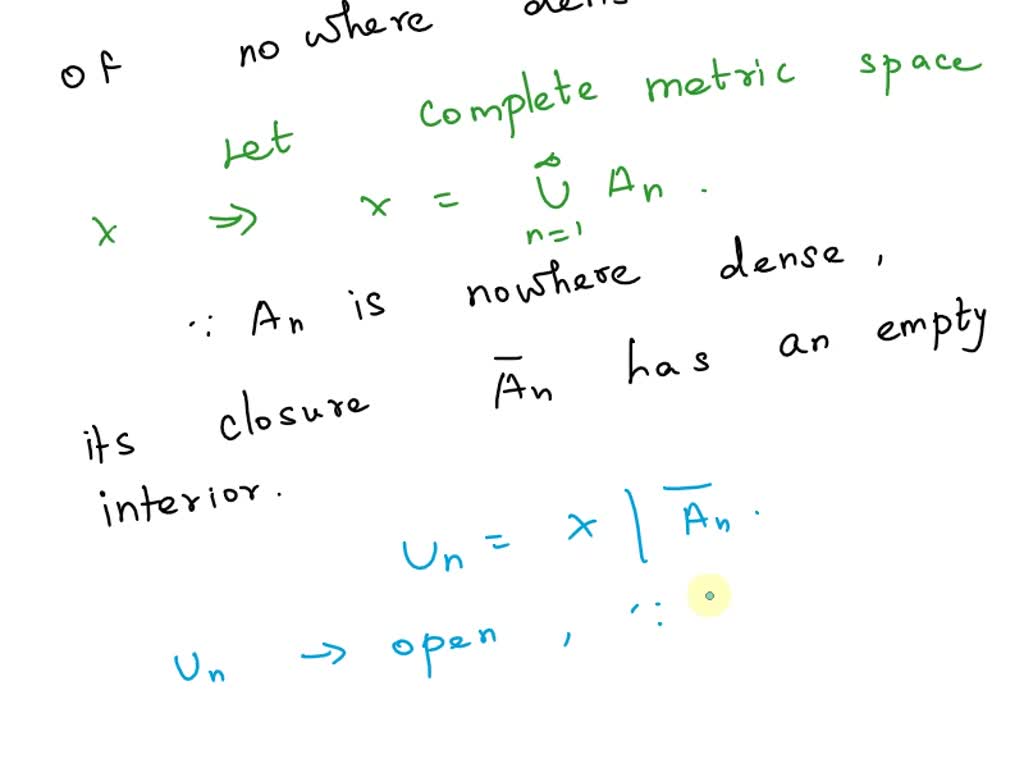 of no where dens
Let complete metric space
X ⇒ X = ∞⋃n=1 An .
∵ An is nowhere dense ,
its closure A̅n has an empty
interior.
Un = X | A̅n .
Un → open , ∵